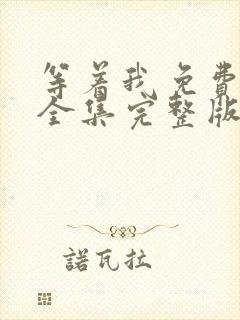 等着我免费
全集完整版
諾瓦拉